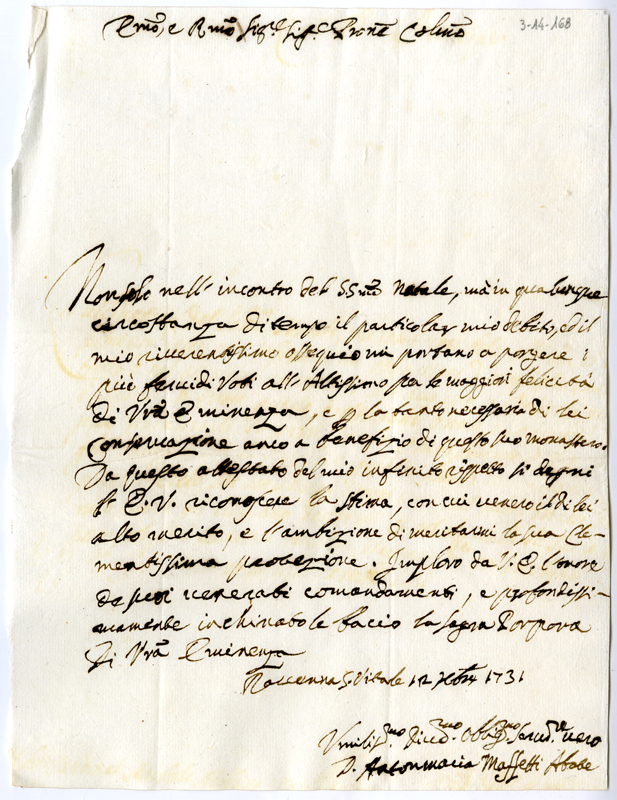 3-14-168
Emo, e Rmo Sigre Sigre Prone Colmo
Non solo nell' incontro del SSmo Natale, mà in qualunque
circostanza di tempo il particolar mio debito, ed il
mio riverentissimo ossequio mi portano a porgere i
più fervidi Voti all' Altissimo per le maggiori felicità
di Vrã Eminenza, e p la tanto necessaria di lei
Conservazione anco a benefizio di questo suo monastero.
Da questo attestato del mio infinito rispetto si degni
l' E. V. riconoscere la stima, con cui venero il di lei
alto merito, e l'ambizione di meritarmi la sua Cle-
mentissima protezione. Imploro da V. E. l'onore
de suoi venerati comandamenti, e profondissi-
mamente inchinato le faccio la sagra Porpora
Di Vrã Eminenza
Ravenna S. Vitale 12 Xbre 1731
Umilismo Divmo Obligmo Servre vero
D. Antonmaria Maffetti Abate